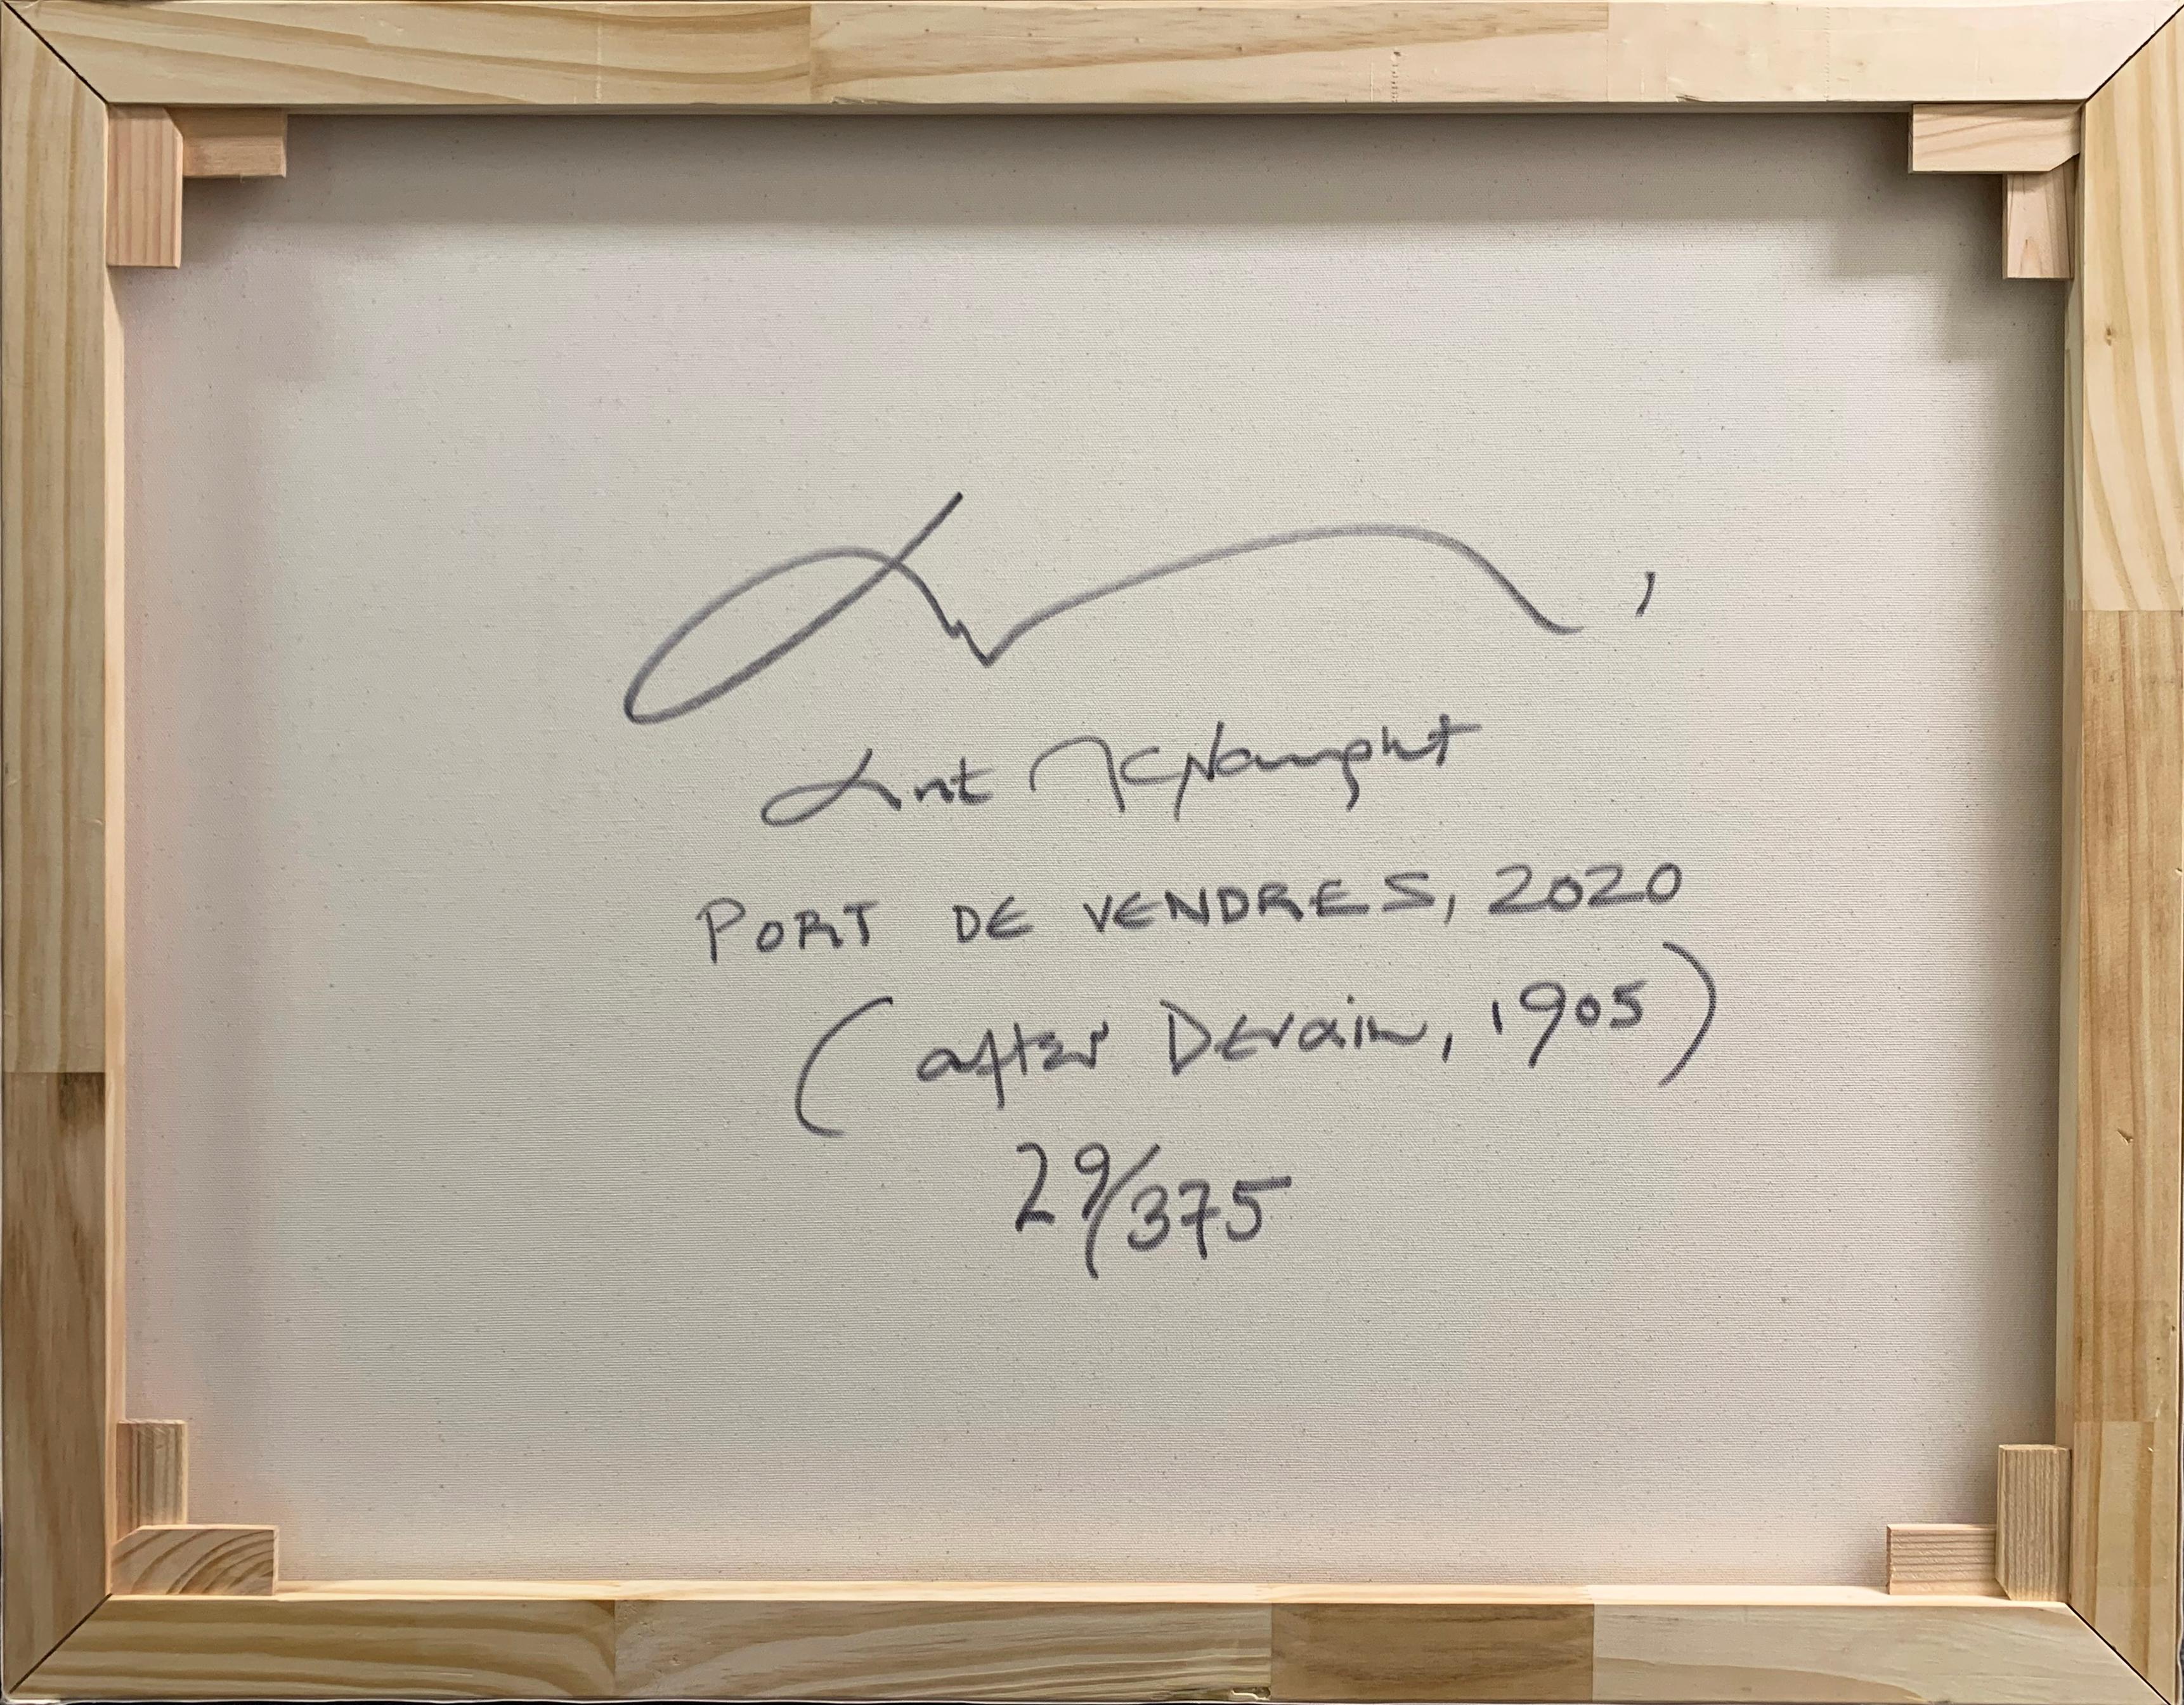 Lint McNaught
PORT DE VENDRES, 2020
(after Derain, 1905)
29/375